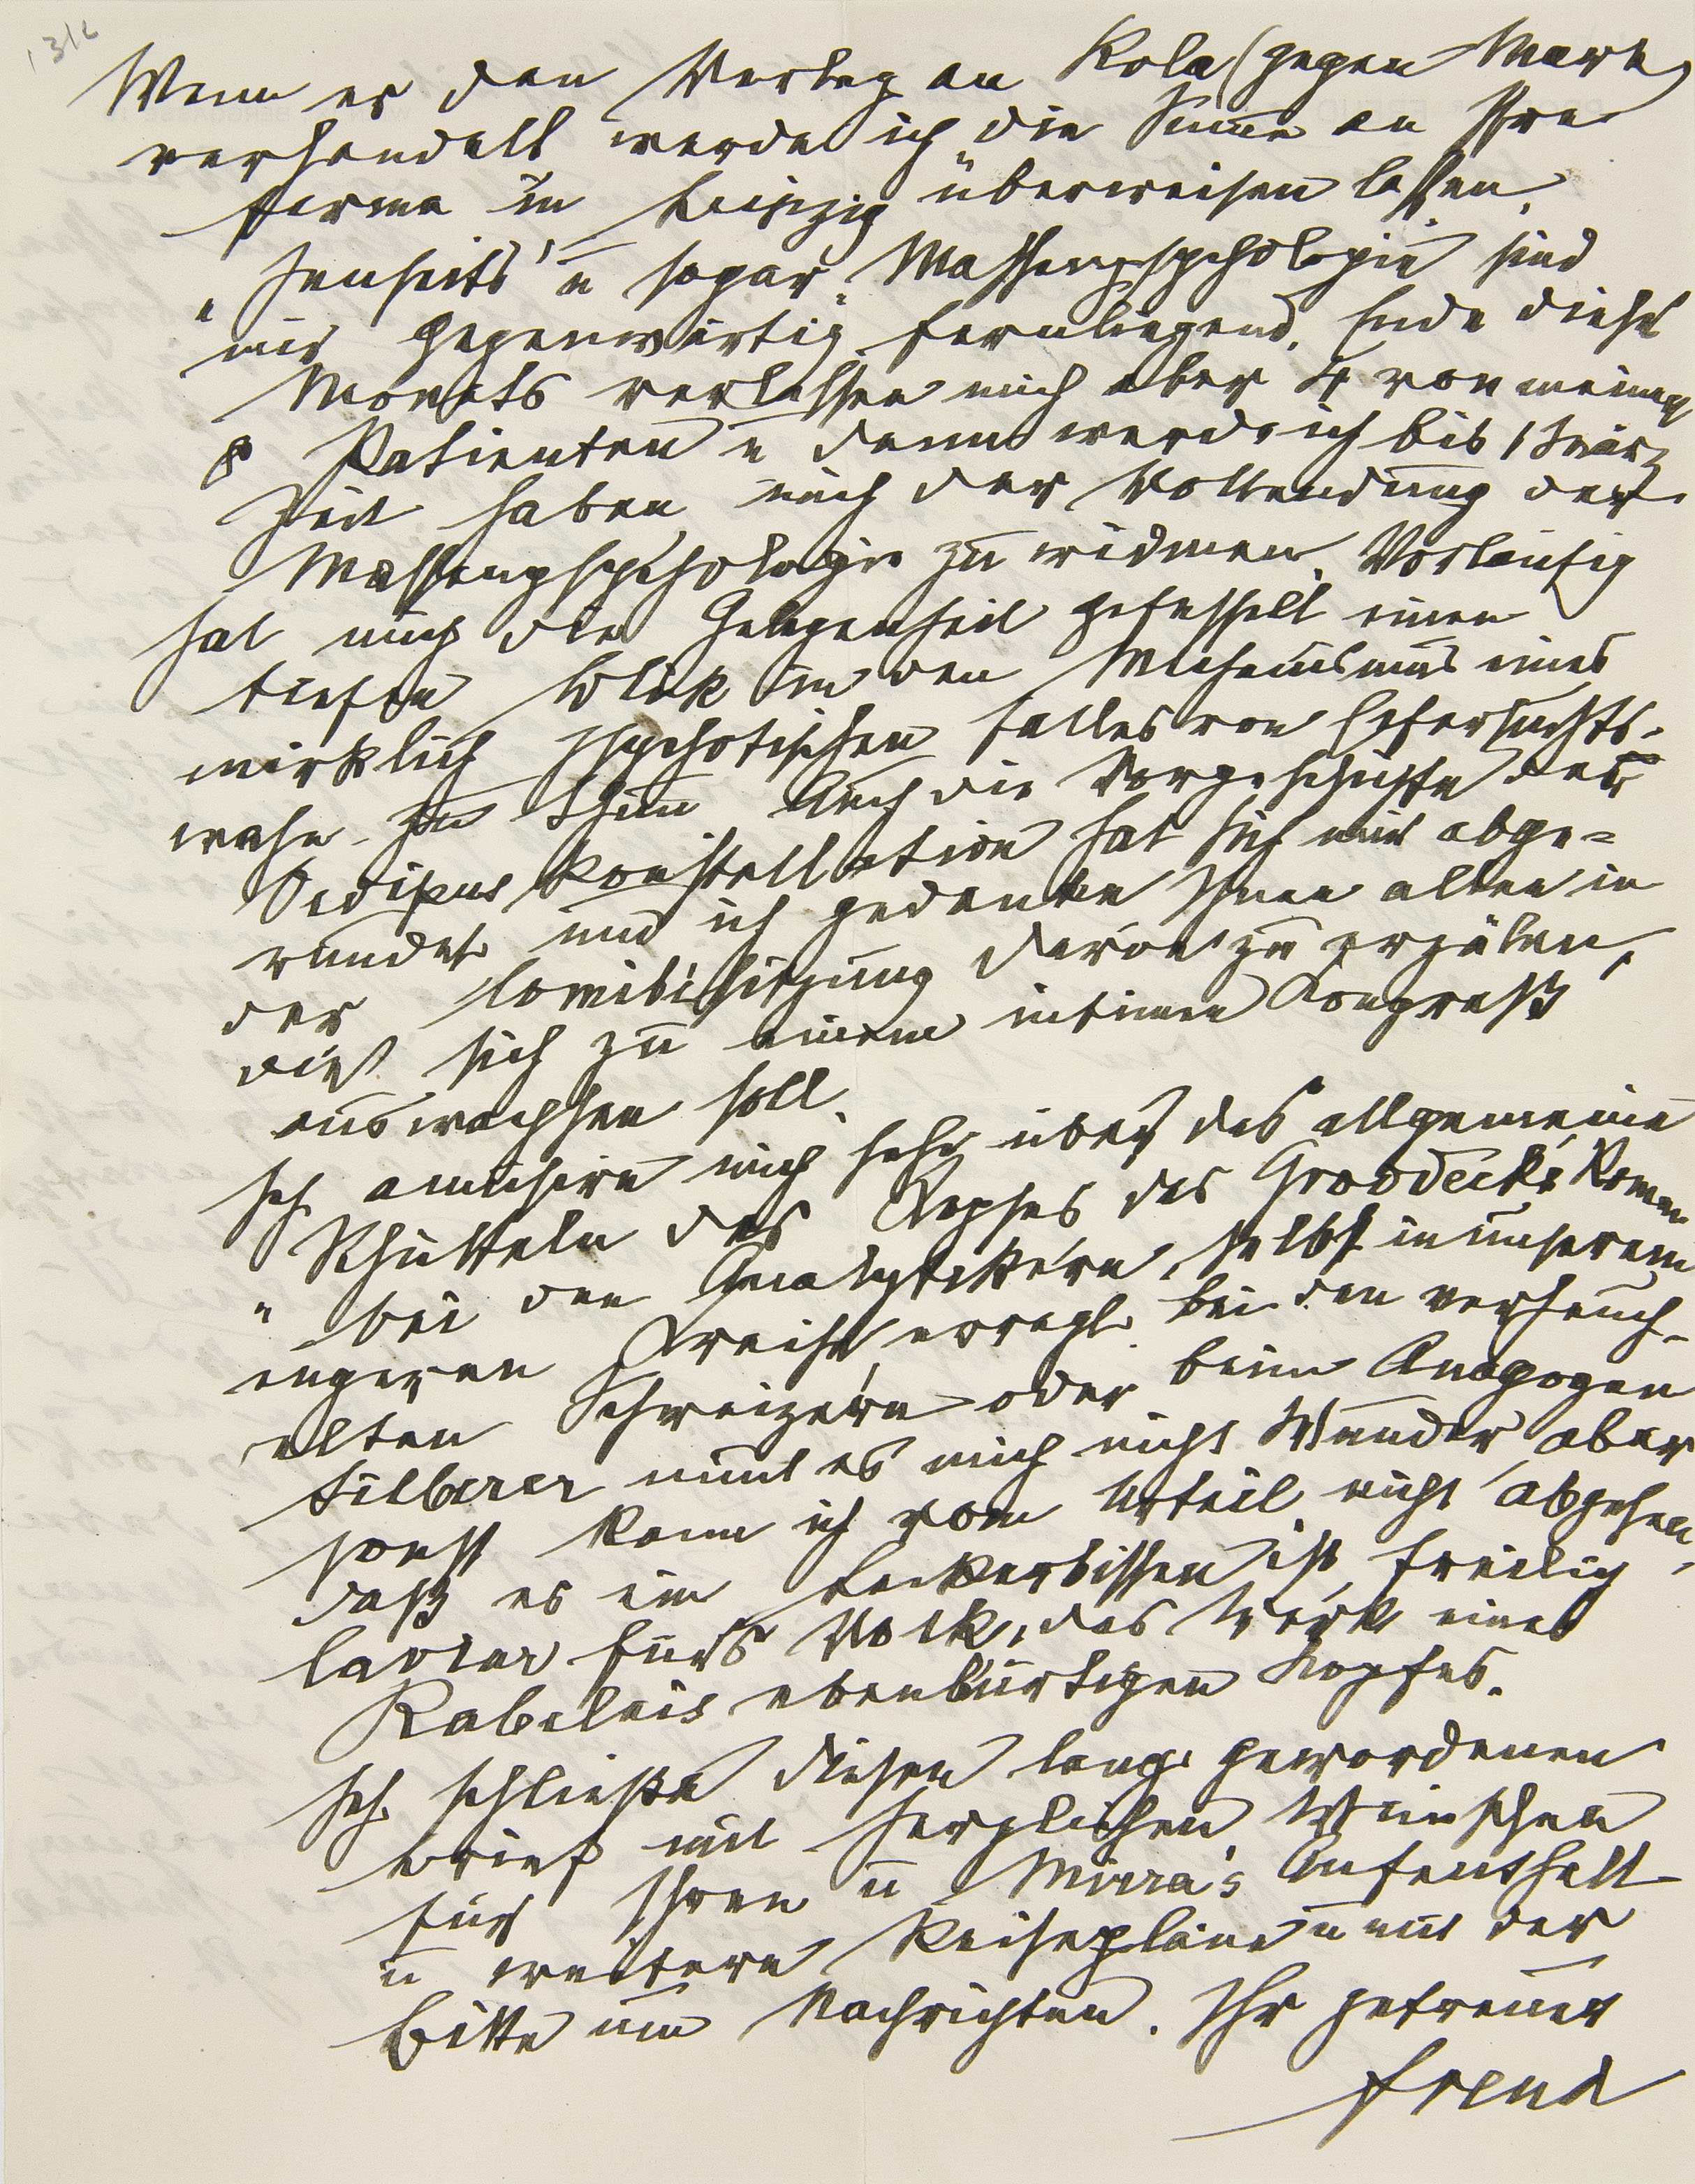 Wenn er den Verlag an Kola (gegen Mark)
verhandelt werde ich die Summe an Ihre
Firma in Leipzig überweisen lassen.
„Jenseits“ u sogar „Massenpsychologie“ sind
mir gegenwärtig fernliegend. Ende dieses
Monats verlassen mich aber 4 von meinen
8 Patienten u dann werde ich bis 1 März
Zeit haben mich der Vollendung der
Massenpsychologie zu widmen. Vorläufig
hat mich die Gelegenheit gefesselt einen
tiefen Blick in den Mechanismus eines
wirklich psychotischen Falles von Eifersuchts-
wahn zu thun. Auch die Vorgeschichte der
Oedipus konstellation hat sich mir abge=
rundet und ich gedenke Ihnen allen in
der Comitésitzung davon zu erzälen,
die sich zu einem intimen Kongreß
auswachsen soll.
Ich amüsire mich sehr über das allgemeine
Schütteln des Kopfes das Groddeck's Roman
bei den Analytikern, selbst in unserem
engeren Kreise, erregt. bei den verseuch-
elten Schweizern oder beim Anagogen
Silberer nimt es mich nicht Wunder, aber
sonst kann ich vom Urteil nicht abgehen,
daß es ein Leckerbissen ist, freilich
Caviar fürs Volk, das Werk eines
Rabelais ebenbürtigen Kopfes.
Ich schließe diesen lang gewordenen
Brief mit herzlichen Wünschen
für Ihren u Mirra's Aufenthalt
u weitere Reisepläne u mit der
Bitte um Nachrichten. Ihr getreuer
Freud